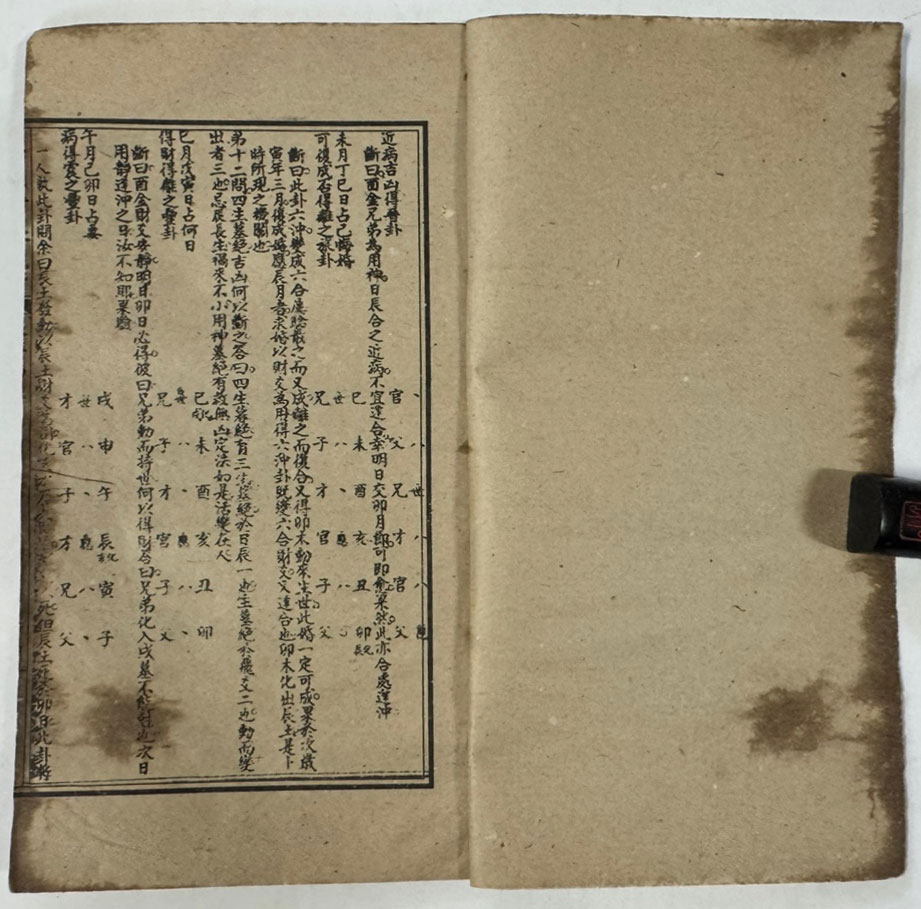 近病吉凶得晉卦　官　父　兄　才　官　父
斷曰酉金兄弟為用神日辰合之近病不宜逢合幸明日交卯月節可即愈果然此亦合處逢沖
未月丁巳日占已悔婚　巳　未　酉　亥　丑　卯
可復成否得離之旅卦　兄　子　才　官　子　父
斷曰此卦六沖變成六合屢啟散之而又成離之而復合又得卯木動來生世此婚一定可成果於次歲
寅年三月復成婚應辰月者求婚以財爻為用得六沖卦既變六合財爻又逢合也卯木化出辰土是卜
時所現之機關也
第十二問四生墓絕吉凶何以斷之答曰四生墓絕有三生墓絕於日辰一也生墓絕於飛爻二也動而變
出者三也忌辰長生禍來不小用神墓絕有救無凶定法如是活變在人
巳月戊寅日占何日　巳　未　酉　亥　丑　卯
得財得離之豐卦　兄　子　才　官　子　父
斷曰酉金財爻安靜明日卯日必得彼曰兄弟動而持世何以得財余曰兄弟化入戌墓不能剋也次日
用靜逢沖之日汝不知耶果驗
午月己卯日占妻　戌　申　午　辰　寅　子
病得震之豐卦　才　官　子　才　兄　父
一人執此卦問余曰辰土發動以辰土財　死但辰土　於卯日此卦